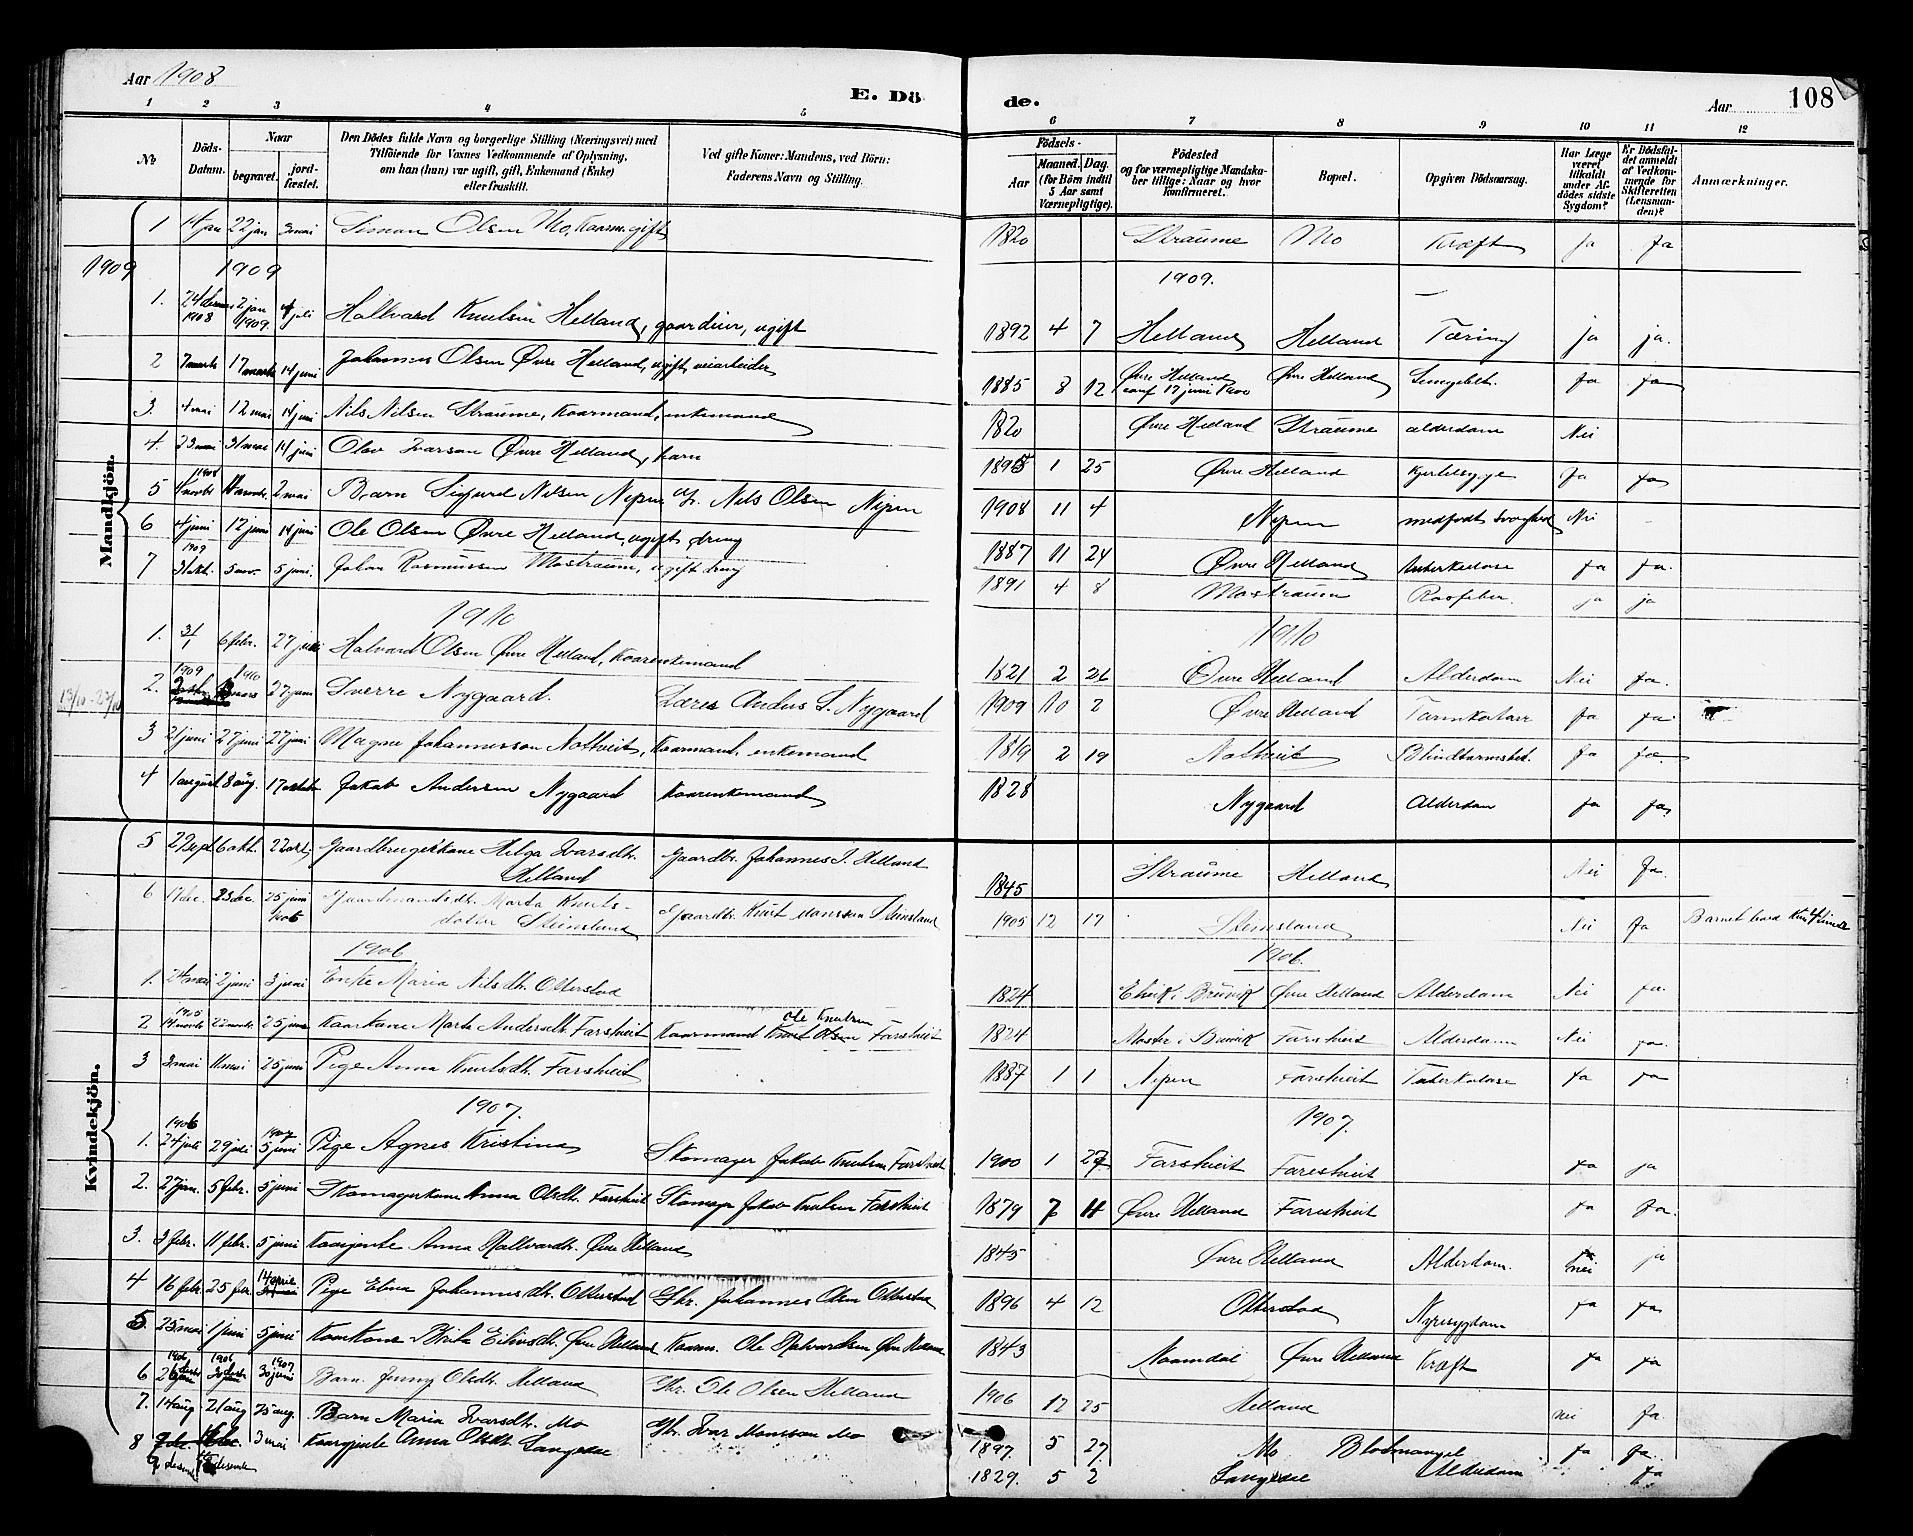 Aar 1908
E. Dö
de.
Aar
108
1 2 3 4 5 6 7 8 9 10 11 12
No
Döds-Datum.
Naar
begravet.
jord-fæstet.
Den Dödes fulde Navn og borgerlige Stilling (Næringsvei) med
Tilföiende for Voxnes Vedkommende af Oplysning,
om han (hun) var ugift, gift, Enkemand (Enke)
eller fraskilt.
Ved gifte Koner: Mandens, ved Börn:
Faderens Navn og Stilling.
Födsels-
Aar
Maaned. Dag.
(for Börn indtil
5 Aar samt
Værnepligtige).
Födested
og for værnepligtige Mandska-
ber tillige: Naar og hvor
konfirmeret.
Bopæl.
Opgiven Dödsaarsag.
Har Læge
været
tilkaldt
under Af-
dödes sidste
Sygdom?
Er Dödsfal-
det anmeldt
af Vedkom-
mende for
Skifteretten
(Lensman-
den)?
Anmærkninger.
Mandkjön.
1 14 jan 22 jan 3 mai Simon Olsen Mo, Kaarm. gift 1820 Straume Mo Kræft ja ja
1909 1909 1909.
1. 24 1908 2 jan 1909. 4 juli Hallvard Knutsen Helland, ugift 1892 4 7 Helland Helland Tæring ja ja.
2 7 marts 17 marts 14 juni Johannes Olsen Øvre Helland, ugift, veiarbeider 1885 8 12 Øvre Helland conf 17 juni 1900 Øvre Helland ja ja
3. 4 mai 12 mai 14 juni Nils Nilsen Straume, Kaarmand, enkemand 1820 Øvre Helland Straume alderdom Nei
4. 23 mai 31 mai 14 juni Olav Ivarson Øvre Helland, barn 1895 1 25 Øvre Helland ja ja
5 1908 4 novbr 2 mai Barn Sigurd Nilsen Nipen Nils Olsen Nipen 1908 11 4 Nipen medfødt Svaghed Nei
6 4 juni 12 juni 14 juni Ole Olsen Øvre Helland, ugift, dreng 1887 11 24 Øvre Helland ja ja.
7 1909 31 okt. 5 nov. 5 juni. Johan Rasmussen Mostraum, ugift dreng 1891 4 8 Mostraum ja ja
1910 1910
1. 31/1 6 febr. 27 juni Halvard Olsen Øvre Helland, Kaarenkemand 1821 2 26 Øvre Helland Alderdom Nei ja.
2. 1909 1910 27 juni Sverre Nygaard. Lars Anders S. Nygaard 1909 10 2 Øvre Helland Tarmkatarr ja ja
3 21 juni 27 juni 27 juni Magne Johannesson Notveit, Kaarmand, enkemand 1819 2 19 Notveit ja ja.
4 1 august 8 aug. 17 oktbr Jakob Andersen Nygaard Kaarenkemand 1828 Nygaard Alderdom ja ja
Kvindekjön.
5 29 sept 6 okt. 22 okt. Gaardbrugerkone Helga Ivarsdtr. Gaardbr. Johannes J. Helland 1845 Straume Helland Nei ja.
Helland
6 17 dec. 23 dec. 25 juni Gaardmandsdtr. Marta Knuts- Gaardbr. Knut Monssen Steinsland 1905 12 17 Steinsland Nei ja
datter Steinsland
1906 1906.
1. 24 mai 2 juni 3 juni Enke Maria Nilsdtr. Otterstad 1824 Eknik i Bruvik Øvre Helland Alderdom Nei ja.
2 1905 14 novbr 22 novbr 25 juni Kaarkone Marta Andersdtr. Farstveit Kaarmand Ole Knutsen Farstveit 1824 Moster i Bruvik Farstveit Alderdom Nei ja.
3 3 mai 11 mai 25 juni Pige Anna Knutsdtr. Farstveit 1887 1 1 Nipen Farstveit Tuberkulose ja ja
1907. 1907.
1. 1906 24 juli 29 juli 1907 5 juni Pige Agnes Kristina Skomager Jakob Knutsen Farstveit 1900 1 27 Farstveit Farestveit ja ja
2. 27 jan. 5 febr. 5 juni Skomagerkone Anna Olsdtr. Farstveit Skomager Jakob Knutsen Farstveit 1879 7 11 Øvre Helland Farestveit ja ja.
3. 3 febr. 11 febr. 5 juni Kaarjente Anna Hallvardsdtr. Øvre Helland 1845 Øvre Helland Alderdom. nei ja
4 16 febr. 25 febr. 14 april Pige Elina Johannesdtr. Otterstad Gbr. Johannes Olsen Otterstad 1896 4 12 Otterstad Nyresygdom ja ja
5. 25 mai 1 juni 5 juni Kaarkone Brita Eilivsdtr. Øvre Helland Kaarm. Ole Halvardsen Øvre Helland 1843 Naamdal Øvre Helland Kræft ja ja
6 1906 26 1906 30 1907 30 juni Barn. Jenny Olsdtr. Helland Gbr. Ole Olsen Helland 1906 12 25 Helland nei ja.
7. 14 aug 21 aug 25 aug. Barn Maria Ivarsdtr. Mo Gbr. Ivar Monsson Mo 1897. 5 27. Mo Blodmangel ja ja.
8 3 mai Kaargjente Anna Olsdtr. 1829. 5 2 Alderdom ja